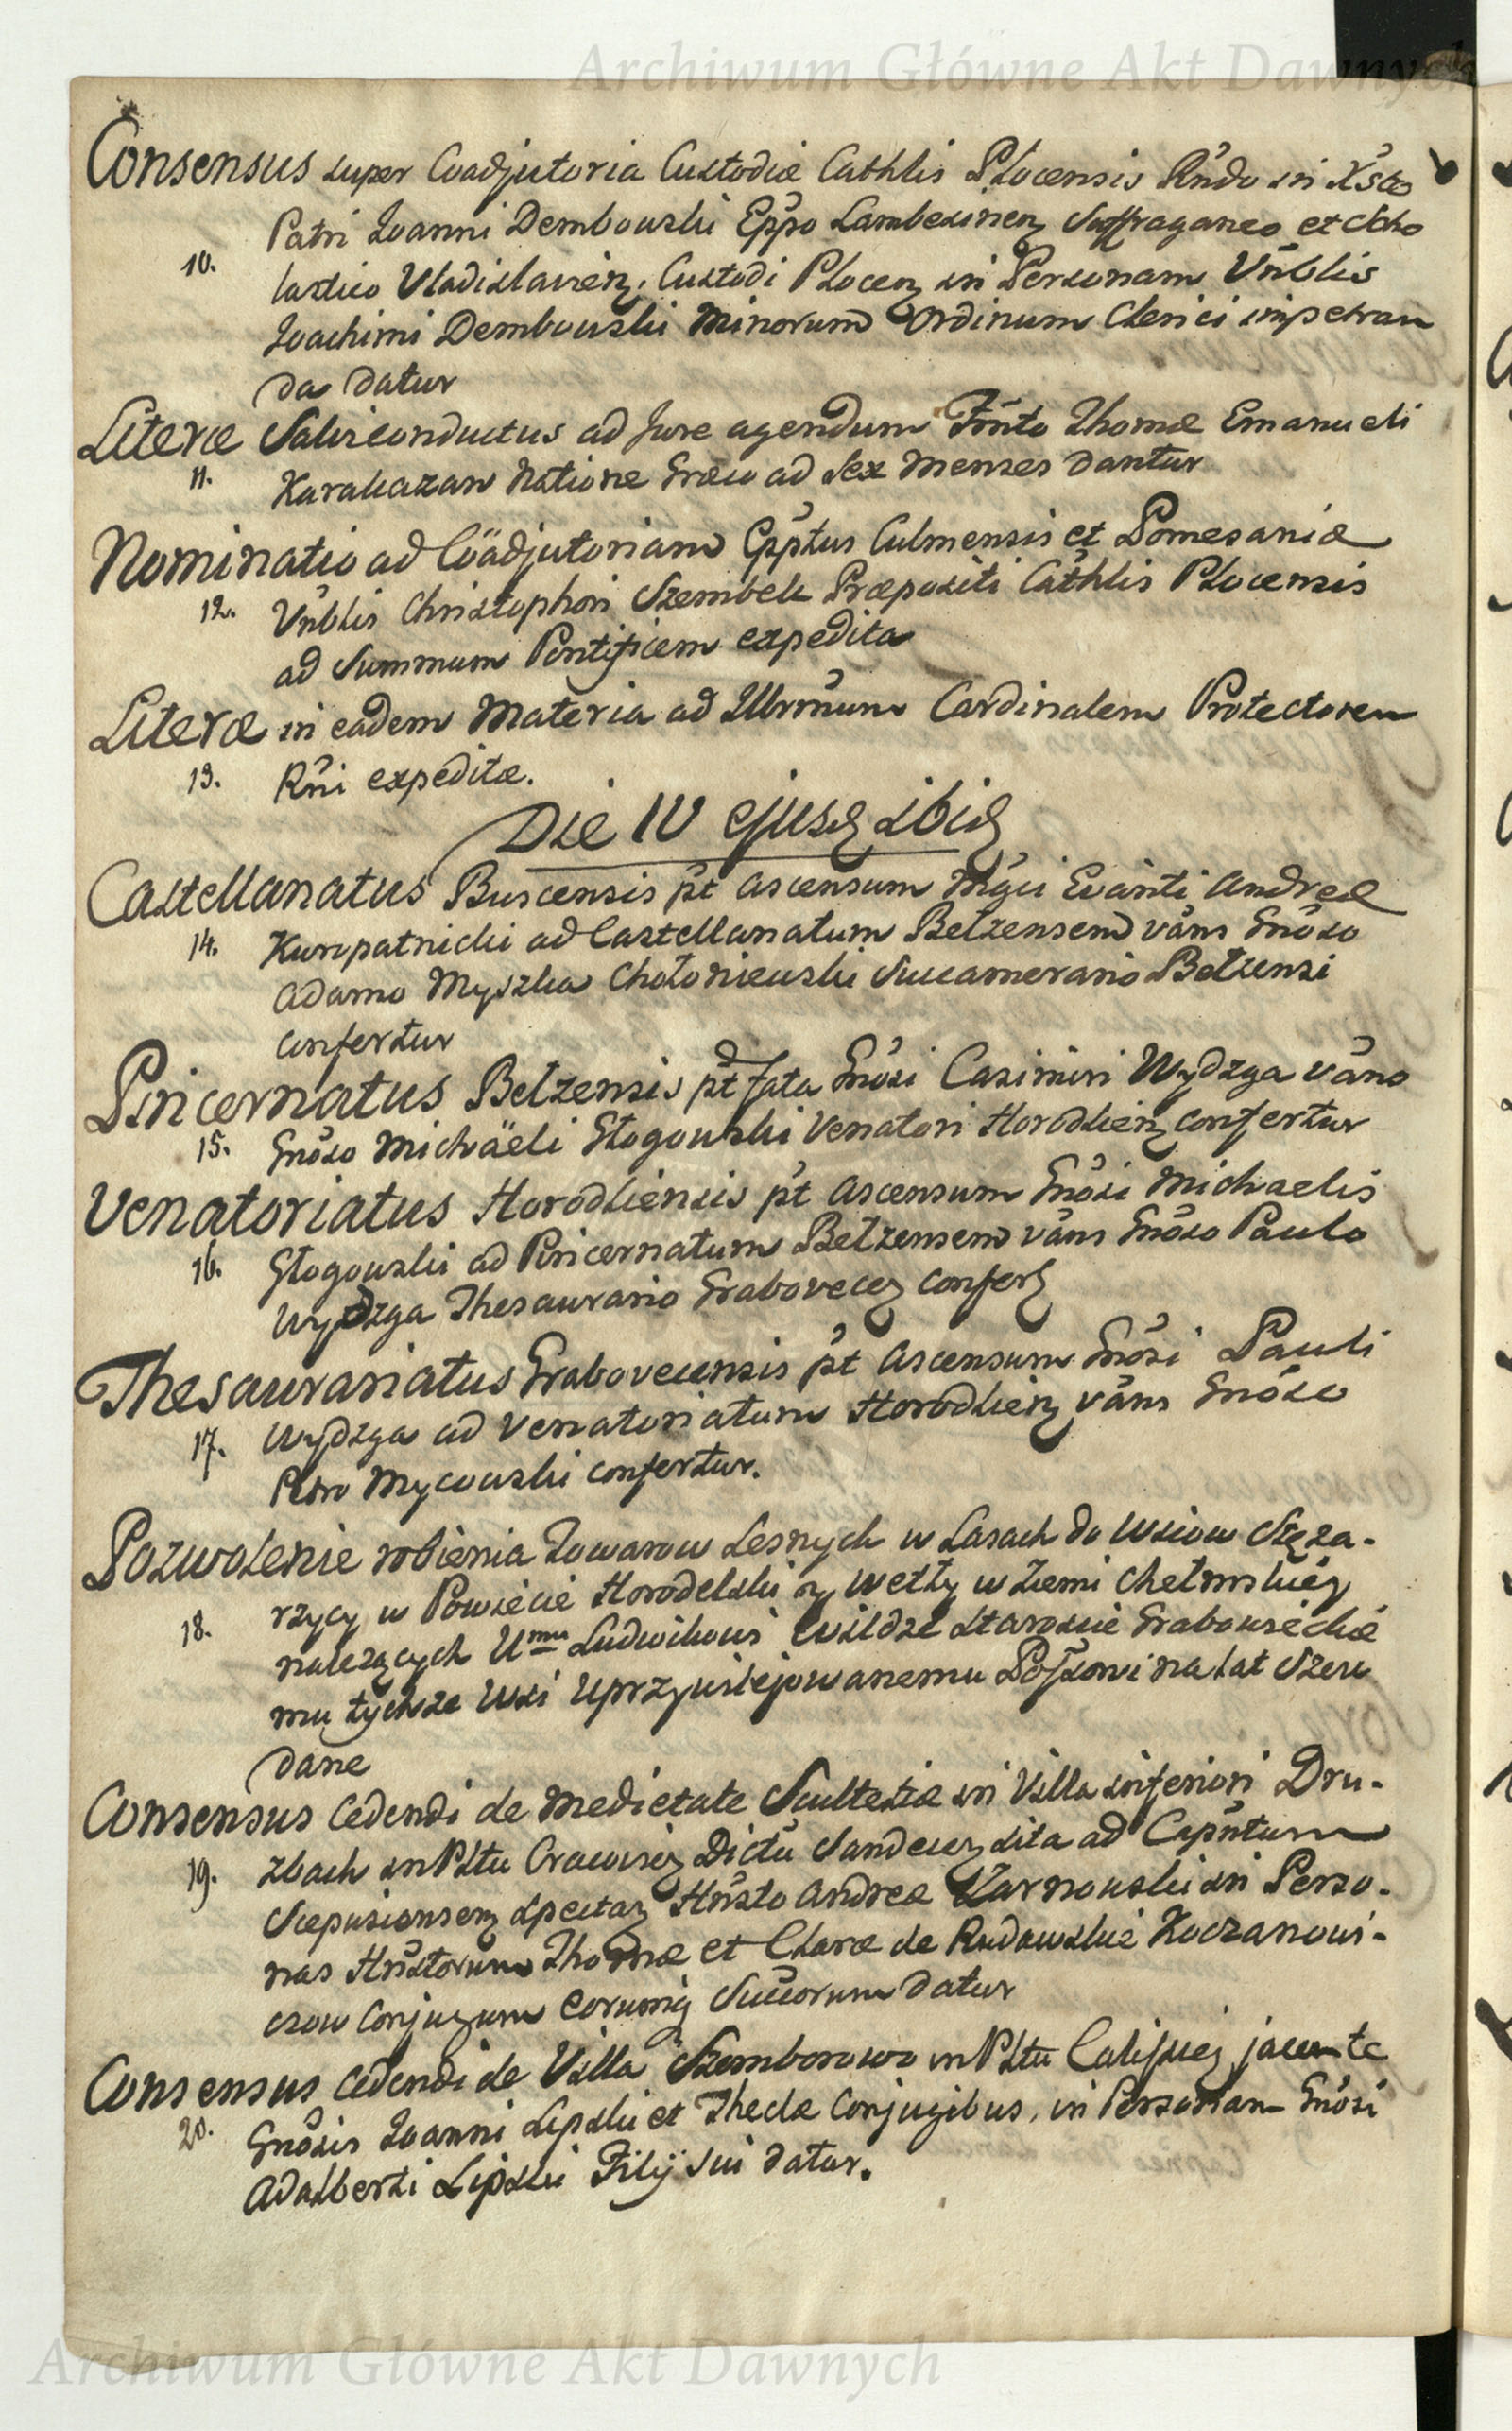 Archiwum Główne Akt Dawnych
Consensus super Coadjutoria Custodiæ Cathlis Plocensis Rndo in Xsto
Patri Joanni Dembowski Eppo Lambesinen Suffraganeo et Scho
10. lastico Vladislavien, Custodi Plocen in Personam Vnblis
Joachimi Dembowski Minorum Ordinum Clerici impetran
da datur
Literæ Salviconductus ad Jure agendum Fmto Thomæ Emanueli
11. Karakazan Natione Græco ad sex menses dantur
Nominatio ad Cöadjutoriam Epptus Culmensis et Pomesaniæ
12. Vnblis Christophori Szembek Præpositi Cathlis Plocensis
ad Summum Pontificem expedita
Literæ in eadem Materia ad Illrmum Cardinalem Protectorem
13. Rni expeditæ.
Die IV ejusd ibid
Castellanatus Buscensis pt ascensum Mgci Evanti Andreæ
14. Kuropatnicki ad Castellanatum Belzensem vans Gnoso
Adamo Myszka Chołoniewski Succamerario Bełzensi
confertur
Pincernatus Belzensis pt fata Gnosi Casimiri Wydzga vans
15. Gnoso Michäeli Głogowski Venatori Horodlien confertur
Venatoriatus Horodliensis pt ascensum Gnosi Michaelis
16. Głogowski ad Pincernatum Bełzensem vans Gnoso Paulo
Wydzga Thesaurario Grabovecen confert
Thesaurariatus Grabovecensis pt ascensum Gnosi Pauli
17. Wydzga ad Venatoriatum Horodlien vans Gnoso
Petro Mycowski confertur.
Pozwolenie robienia Towarow Lesnych w Lasach do Wsiow Stęza-
18. rzycy w Powiecie Horodelski y Wetły w Ziemi Chełmskiey
nalezących Umu Ludwikowi Wildze Staroscie Grabowieckie
mu tychze Wsi Uprzywilejowanemu Possowi na lat Szesc
dane
Consensus cedendi de medietate Scultetiæ in Villa inferiori Dru-
19. zbach in Pltu Cracovien Dictu Sandecen sita ad Capntum
Scepusiensem spectan Hnsto Andreæ Karnowski in Perso-
nas Hnstorum Thomæ et Claræ de Rudawskie Koczanowi-
czow Conjugum eorumq Succorum datur
Consensus cedendi de Villa Szemborowo in Pltu Calissien jacente
20. Gnosis Joanni Lipski et Theclæ Conjugibus, in Personam Gnosi
Adalberti Lipski Filij sui datur.
Archiwum Główne Akt Dawnych